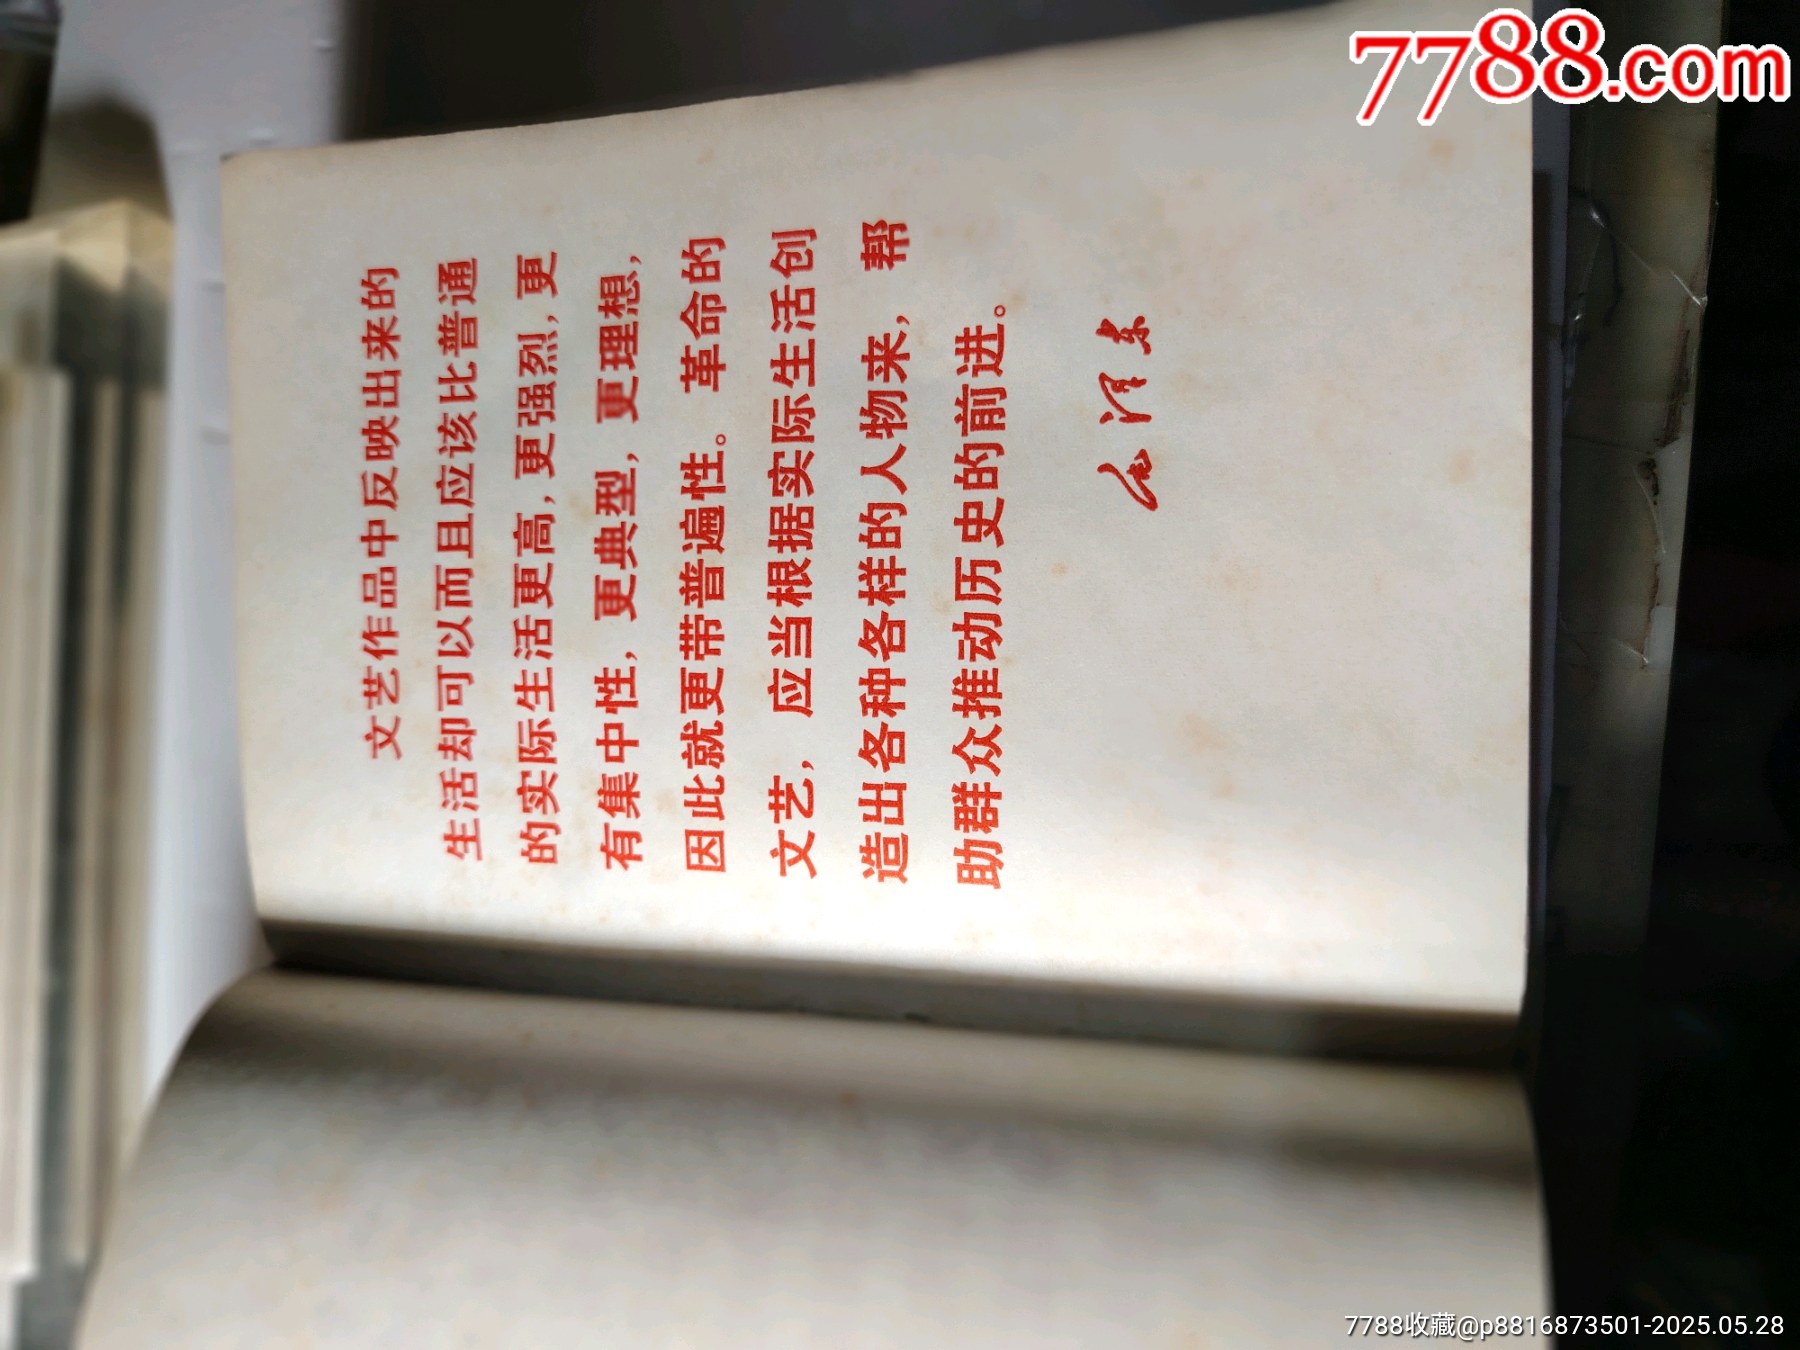 7788.com
文艺作品中反映出来的
生活却可以而且应该比普通
的实际生活更高，更强烈，更
有集中性，更典型，更理想，
因此就更带普遍性。革命的
文艺，应当根据实际生活创
造出各种各样的人物来，帮
助群众推动历史的前进。
毛泽东
7788收藏@p8816873501-2025.05.28